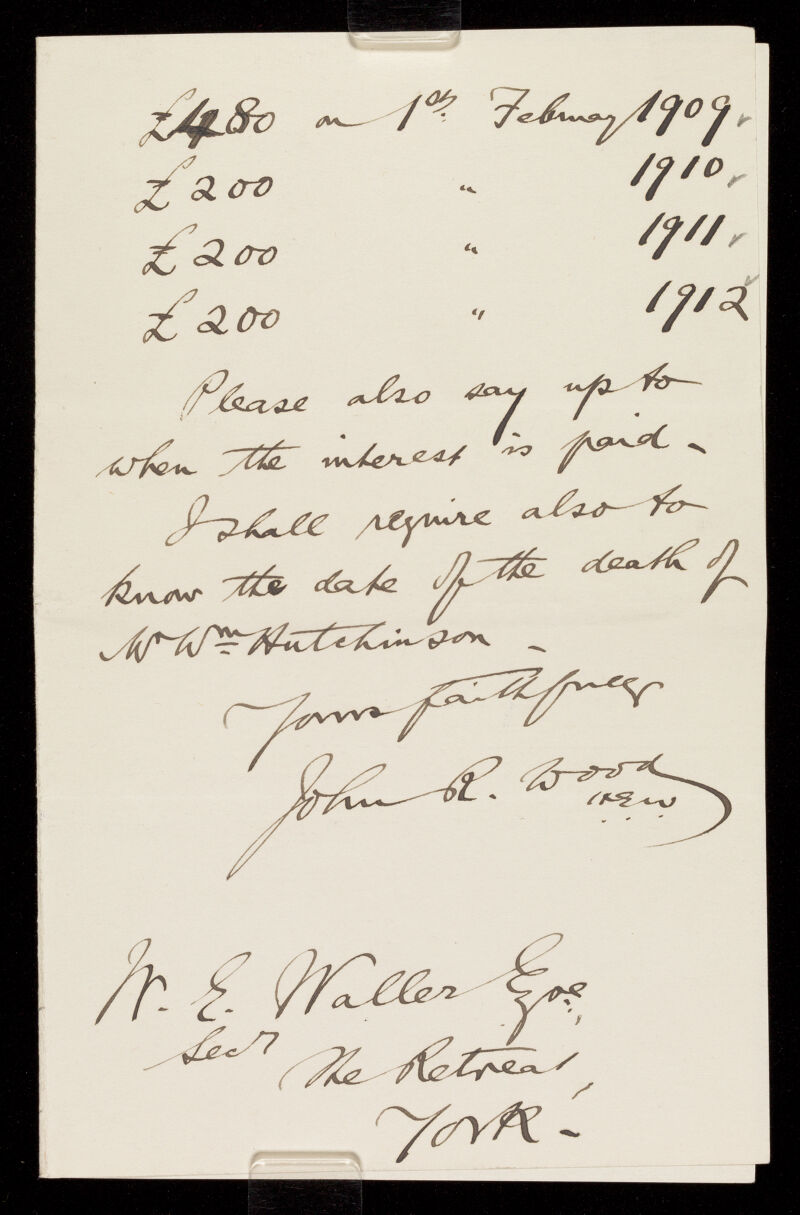 £480 on 1st. February 1909
£200 " 1910
£200 " 1911
£200 " 1912
Please also say up to
when the interest is paid -
I shall require also to
know the date of the death of
Mr Wm Hutchinson -
Yours faithfully
John R. Wood
W. E. Waller Esqre,
Secr
The Retreat,
York -